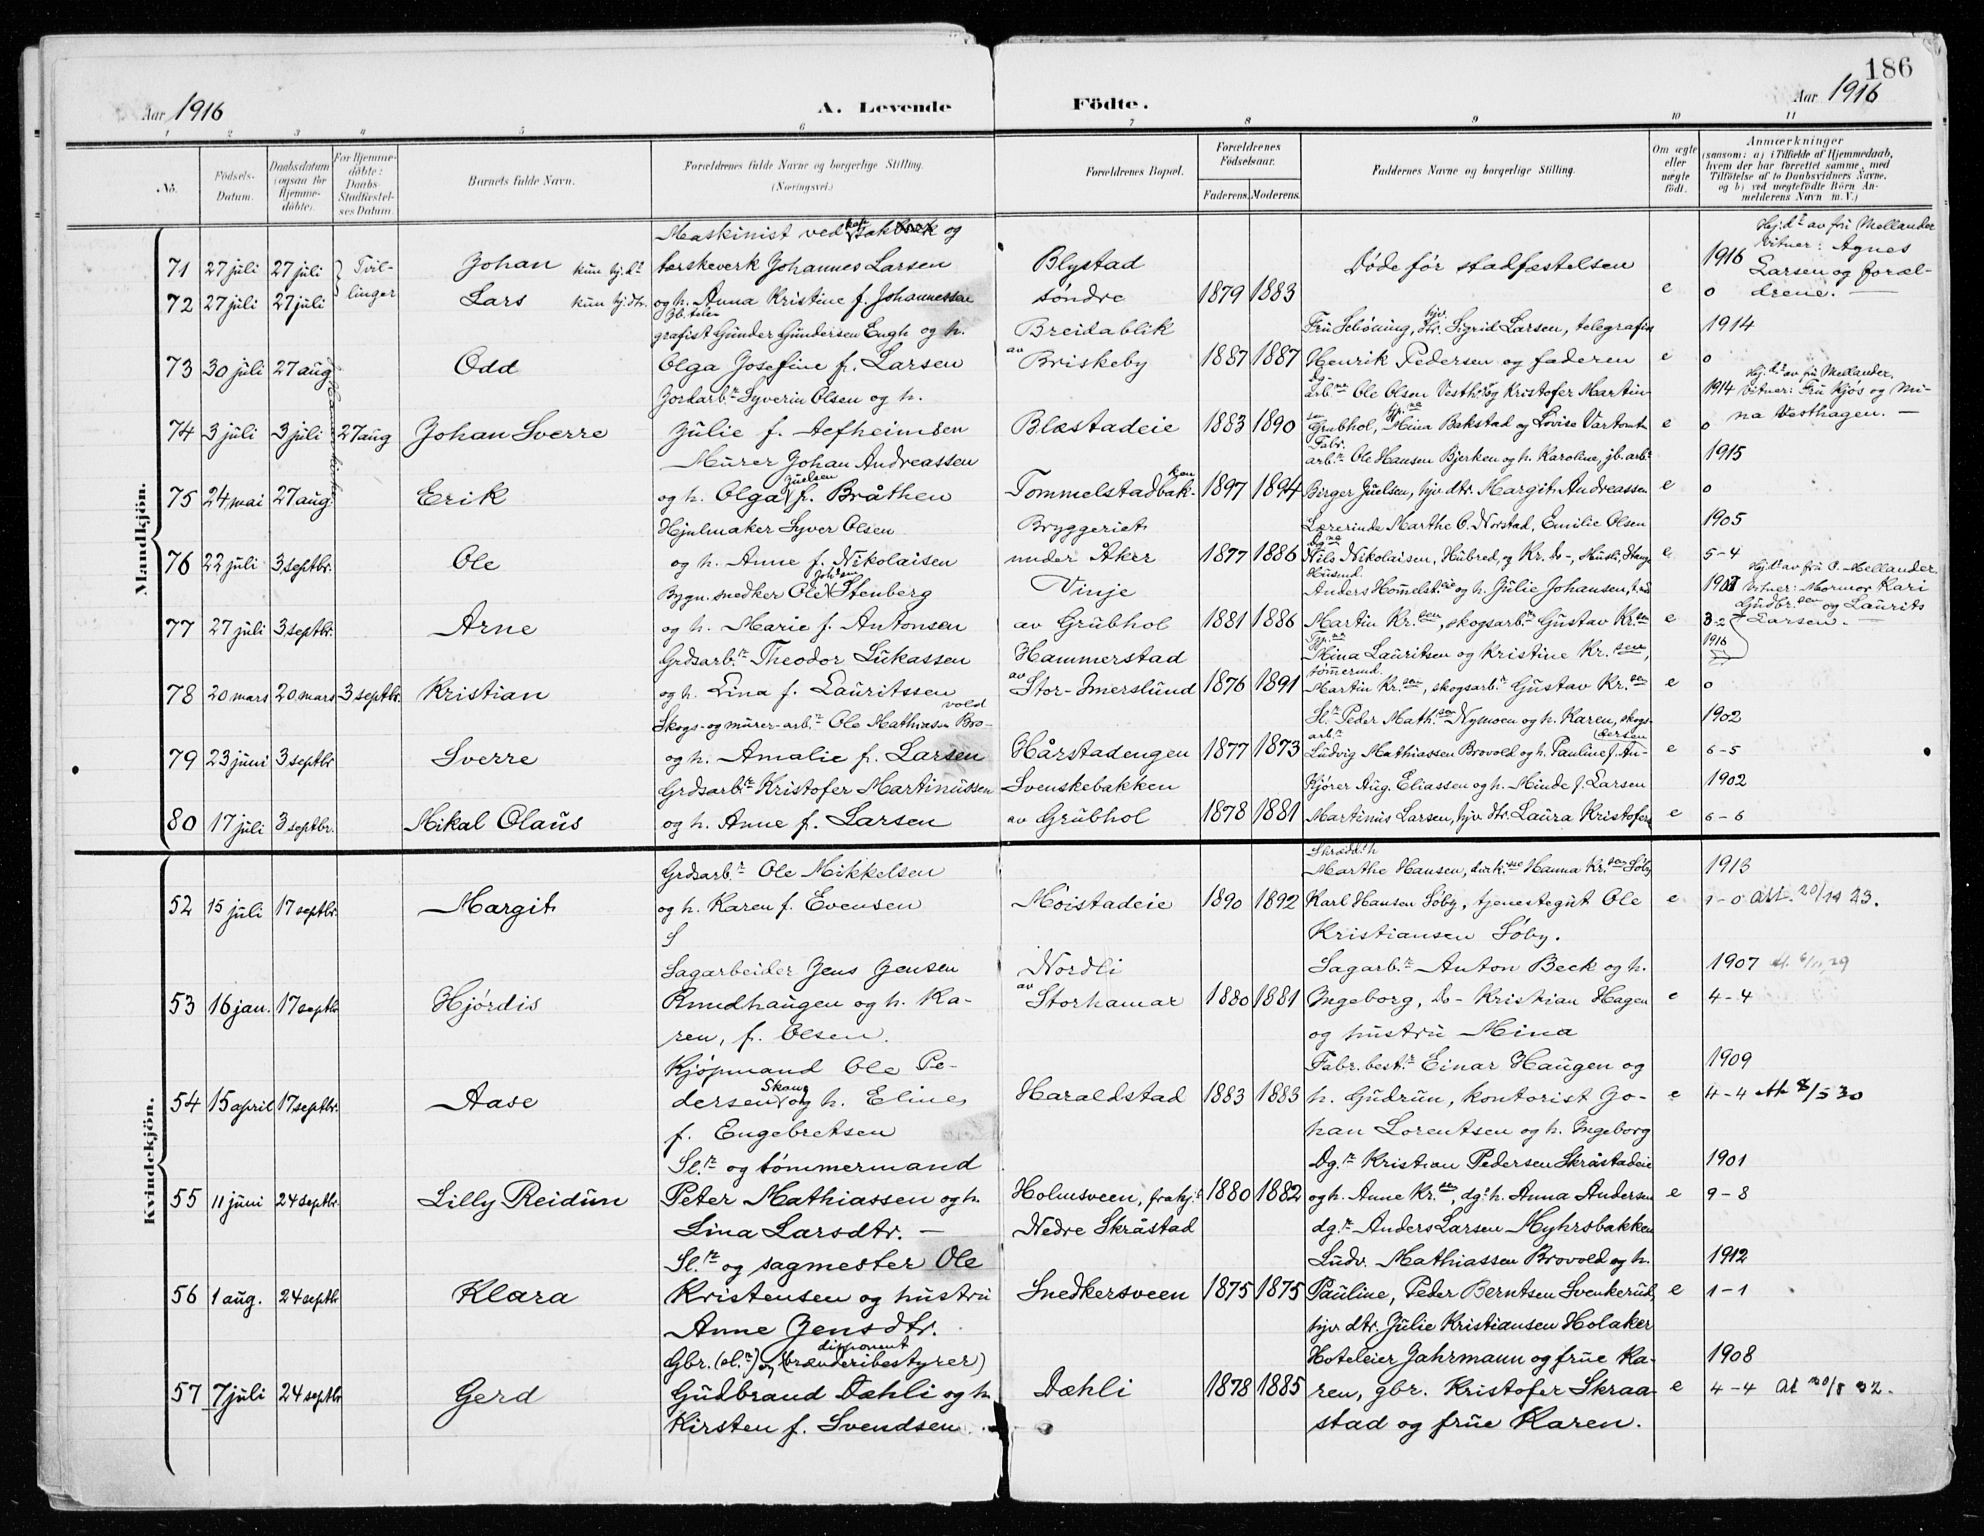 186
Aar 1916
A. Levende Födte.
Aar 1916
1 2 3 4 5 6 7 8 9 10 11
No.
Födsels-Datum.
Daabsdatum (ogsaa for Hjemmedöbte).
For Hjemmedöbte: Daabs-Stadfæstelses Datum
Barnets fulde Navn.
Forældrenes fulde Navne og borgerlige Stilling.
(Næringsvei.)
Forældrenes Bopæl.
Forældrenes Födselsaar.
Faderens. Moderens.
Faddernes Navne og borgerlige Stilling.
Om ægte eller uægte födt.
Anmærkninger
(saasom: a) i Tilfælde af Hjemmedaab,
hvem der har forrettet samme, med
Tilföielse af to Daabsvidners Navne,
og b) ved uægtefödte Börn Anmelderens Navn m.V.)
Mandkjön.
Maskinist ved og
71 27 juli 27 juli Tvil- Johan kun hj.dt torskeverk Johannes Larsen Blystad Døde før stadfæstelsen 1916
Hj.dt av fru Mellander
Vitner: Agnes
Larsen og foræl-
drene. —
72 27 juli 27 juli linger Lars kun hj.dt. og h. Anna Kristine f. Johannessen søndre 1879 1883 e 0
grafist Gunder Gundersen Engh og h. Breidablik Fru Schøning, hjv. dtr. Sigrid Larsen, telegrafist 1914
73 30 juli 27 aug. Odd Olga Josefine f. Larsen av Briskeby 1887 1887 Henrik Pedersen og faderen e 0
Jordarb.r Syverin Olsen og h. arb.ne Ole Olsen Vesth. og Kristofer Martin- 1914
Hj.dt av fru Mellander.
Vitner: Fru Kjøs og Mi-
na Vesthagen. —
74 3 juli 3 juli 27 aug Johan Sverre Julie f. Aefheimsen Blæstadeie 1883 1890 sen Grubhol, Mina Bakstad og Lovise Vartomt e 0
Murer Johan Andreassen Fabr. arb.r Ole Hansen Bjerken og h. Karoline, jb. arb.r 1915
75 24 mai 27 aug. Erik og h. Olga Juelsen f. Bråthen Tommelstadbakken 1897 1894 Birger Juelsen, hjv dtr. Margit Andreassen e 0
Hjulmaker Syver Olsen Bryggeriet Lærerinde Marthe O. Norstad, Emilie Olsen 1905
76 22 juli 3 septbr. Ole og h. Anne f. Nikolaisen under Åker 1877 1886 Nils Nikolaisen, Hubred, og Kr. Do-, Husli, Stange e 5-4
Bygn. snedker Ole Joh.sen Stenberg Vinje Husmd. Anders Hommelst.eie og h. Julie Johansen, 1907
Hj.dt av fru P. Mellander.
Vitner: Mormor Kari
Gudbr.sen og Laurits
Larsen. —
77 27 juli 3 septbr. Arne og h. Marie f. Antonsen av Grubhol 1881 1886 Martin Kr.sen, skogsarb.r Gustav Kr.sen e 3-2
Grdsarb.r Theodor Lukassen Hammerstad Mina Lauritsen og Kristine Kr.sen, 1916
78 20 mars 20 mars 3 septbr. Kristian og h. Lina f. Lauritssen av Stor-Imerslund 1876 1891 tømmermd. Martin Kr.sen, skogsarb.r Gustav Kr.sen e 0
Skogs- og murer-arb.r Ole Mathiassen Brovold Sl.r Peder Math.sen Nymoen og h. Karen, skogs- 1902
79 23 juni 3 septbr Sverre og h. Amalie f. Larsen Hårstadengen 1877 1873 arb.r Ludvig Mathiassen Brovold og h. Pauline f. Andersen e 6-5
Grdsarb.r Kristofer Martinussen Svenskebakken Kjører Aug. Eliassen og h. Minde f. Larsen 1902
80 17 juli 3 septbr. Mikal Olaus og h. Anne f. Larsen av Grubhol 1878 1881 Martinus Larsen, hjv. dtr. Laura Kristofers e 6-6
Kvindekjön.
Grdsarb.r Ole Mikkelsen Marthe Hansen, Hanna Kr.sen Søby 1913
52 15 juli 17 septbr. Margit og h. Karen f. Evensen Moistadeie 1890 1892 Karl Hansen Søby, tjenestegut Ole e 1-0 Att. 20/12 23.
Kristiansen Søby.
Sagarbeider Jens Jensen Nordli Sagarb.r Anton Beck og h. 1907 At. 6/11 29
53 16 jan. 17 septbr Hjørdis Knudhaugen og h. Ka- av Storhamar 1880 1881 Ingeborg, Do- Kristian Hagen e 4-4
ren, f. Olsen. og hustru Mina
Kjøpmand Ole Pe- Fabr. best.r Einar Haugen og 1909
54 15 april 17 septbr. Aase dersen og h. Eline, Haraldstad 1883 1883 h. Gudrun, kontorist Jo- e 4-4 At 8/5 30
f. Engebretsen han Lorentsen og h. Ingeborg
Sl.r og tømmermand Dg.r Kristian Pedersen Skråstadeie 1901
55 11 juni 24 septbr. Lilly Reidun Peter Mathiassen og h. Holmsveen, 1880 1882 og h. Anne Kr.sen, dg. h. Anna Andersen e 9-8
Lina Larsdtr. — Nedre Skråstad dg.r Anders Larsen Myhrsbakken
Sl.r og sagmester Ole Ludv. Mathiassen Brovold og h. 1912
56 1 aug. 24 septbr Klara Kristensen og hustru Snedkersveen 1875 1875 Pauline, Peder Berntsen Svenkerud, e 1-1
Anne Jensdtr. hjv. dtr. Julie Kristiansen Holaker
Gbr. (sl.r) og (disponent brænderibestyrer) Hoteleier Jahrmann og frue Ka- 1908
57 7 juli 24 septbr Gerd Gudbrand Dæhli og h. Dæhli 1878 1885 ren, gbr. Kristofer Skraa- e 4-4 At 20/8 32.
Kirsten f. Svendsen. stad og frue Karen.